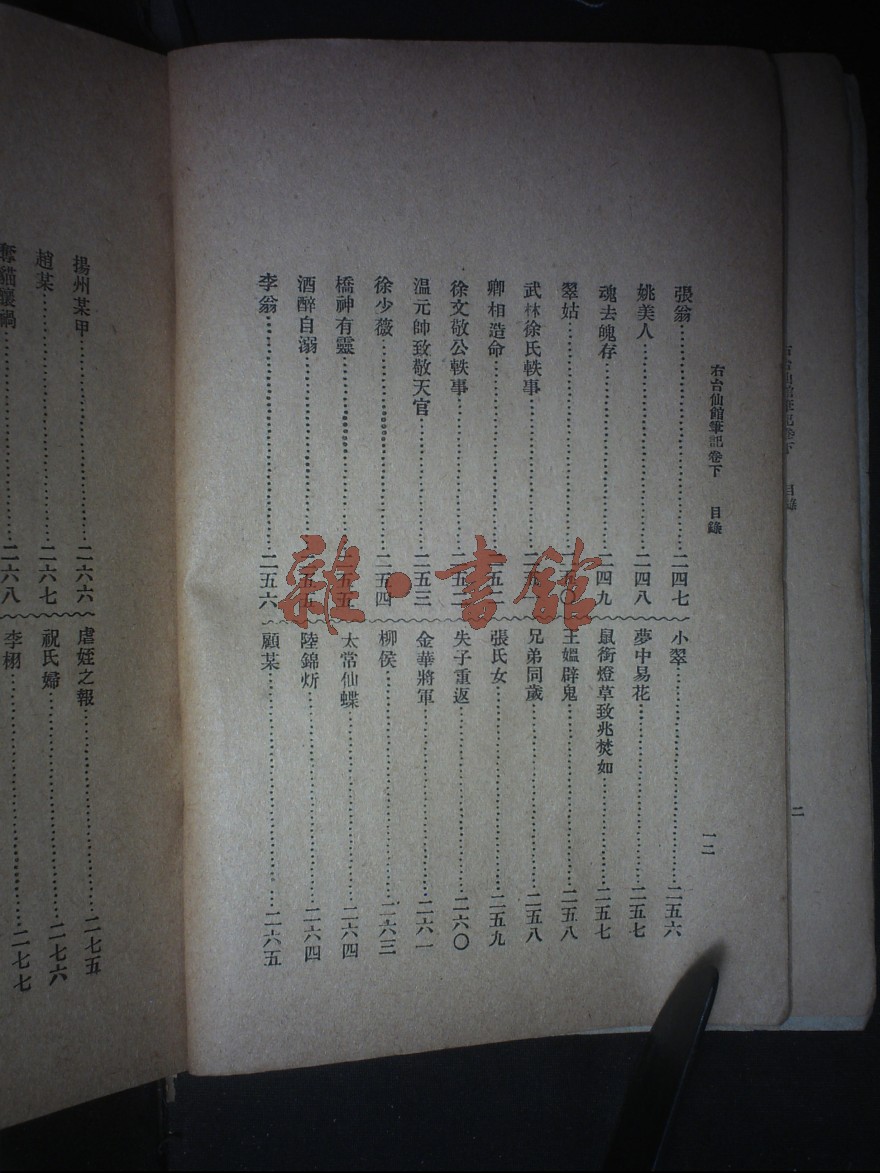 右台仙館筆記卷下　目錄
一二
張翁……二四七
姚美人……二四八
魂去魄存……二四九
翠姑……二五〇
武林徐氏軼事
卿相造命
徐文敬公軼事……二五二
溫元帥致敬天官……二五三
徐少薇……二五四
橋神有靈……二五五
酒醉自溺……二五五
李翁……二五六
小翠……二五六
夢中易花……二五七
鼠銜燈草致兆焚如……二五七
王媼辟鬼……二五八
兄弟同歲……二五八
張氏女……二五九
失子重返……二六〇
金華將軍……二六一
柳侯……二六三
太常仙蝶……二六四
陸錦炘……二六四
顧某……二六五
揚州某甲……二六六
趙某……二六七
奪貓釀禍……二六八
虐姪之報……二七五
祝氏婦……二七六
李栩……二七七
右台仙館筆記卷下　目錄
二
雜·書館